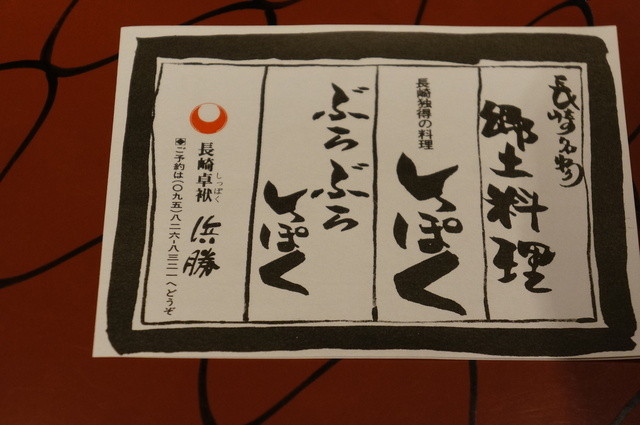 長崎名物
郷土料理
長崎独得の料理
しっぽく
ぶらぶら
しっぽく
長崎卓袱 浜勝
しっぽく
◆ご予約は(〇九五)八二六-八三二一へどうぞ